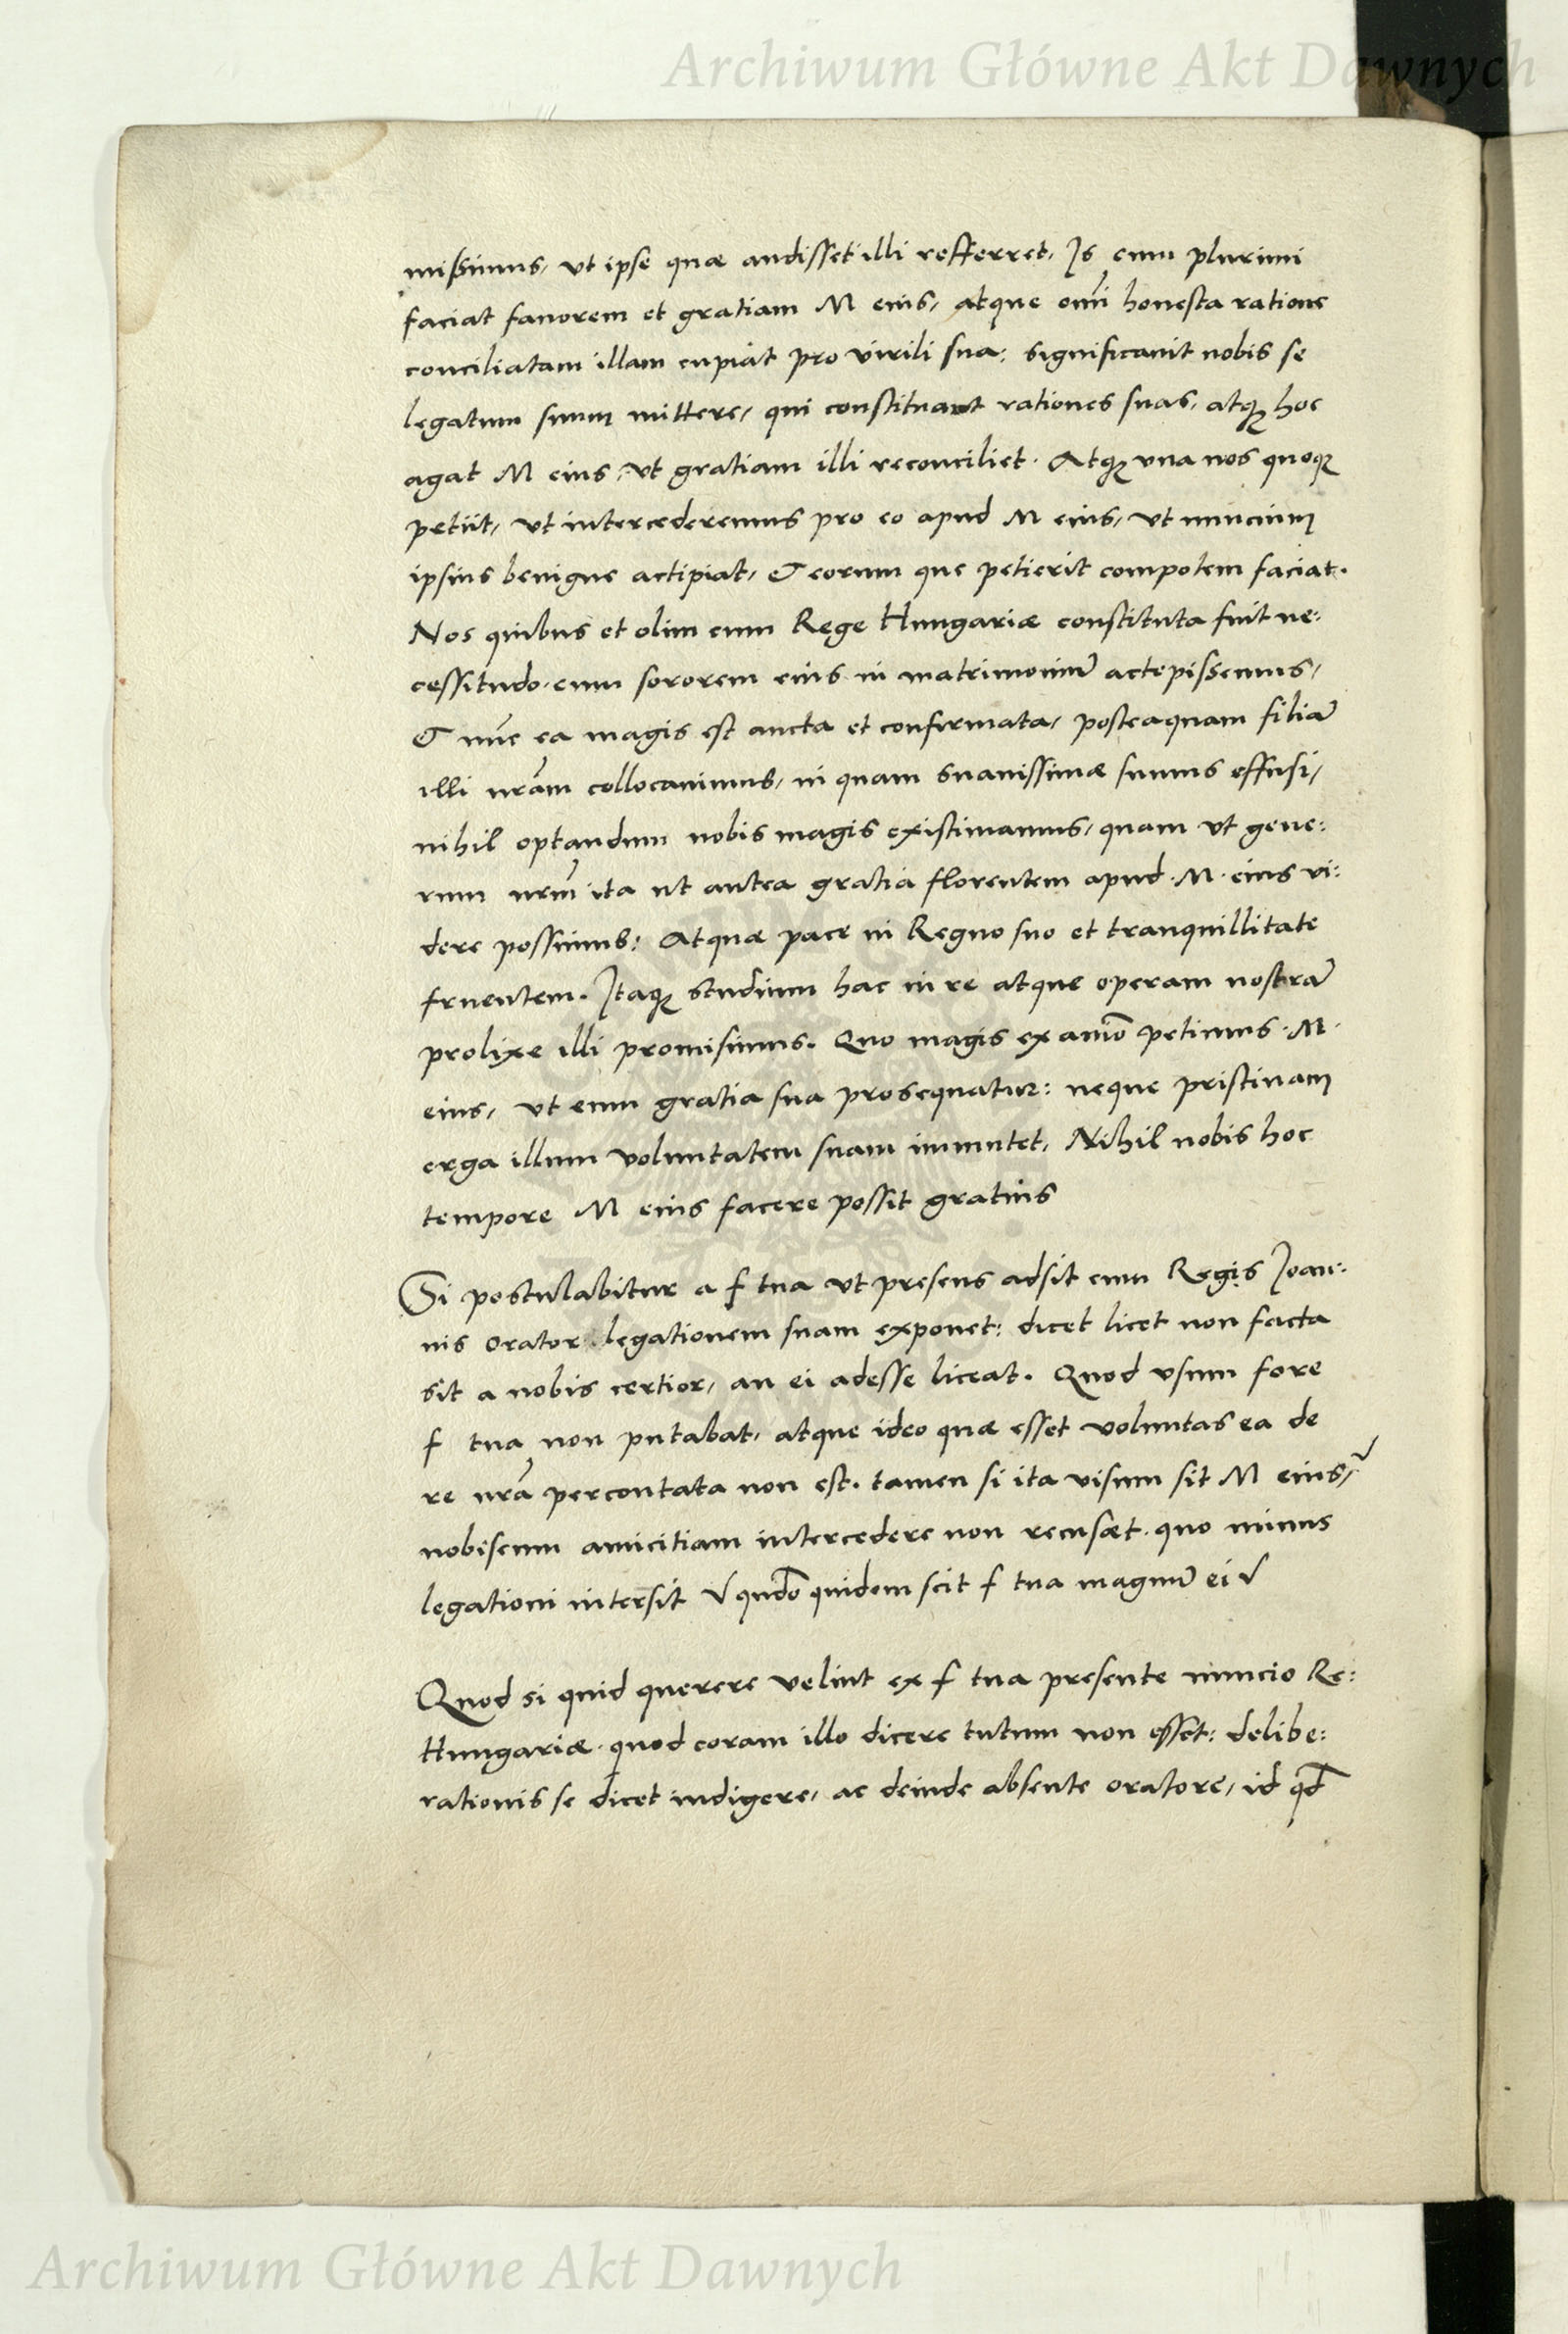 Archiwum Główne Akt Dawnych
missimus, ut ipse quæ audisset illi refferret, Is cum plurimi
faciat favorem et gratiam M eius, atque omĩ honesta ratione
conciliatam illam cupiat pro virili sua: significavit nobis se
legatum suum mittere, qui constituat rationes suas, atqȝ hoc
agat M eius, ut gratiam illi reconciliet. Atqȝ una nos quoqȝ
petiit, ut intercederemus pro eo apud M eius, ut nuncium
ipsius benigne actipiat, & eorum que petierit compotem faciat.
Nos quibus et olim cum Rege Hungariæ constituta fuit ne:
cessitudo, cum sororem eius in matrimoniũ actepissemus,
& nũc ea magis est aucta et confirmata, posteaquam filiã
illi nrãm collocavimus, in quam suavissimæ sumus effusi,
nihil optandum nobis magis existimamus, quam ut gene:
rum nrm̃ ita ut antea gratia florentem apud . M . eius vi:
dere possimus: Atquæ pace in Regno suo et tranquillitate
fruentem. Itaqȝ studium hac in re atque operam nostrã
prolixe illi promisimus. Quo magis ex aĩmo petimus . M .
eius, ut eum gratia sua prosequatur: neque pristinam
erga illum voluntatem suam immutet, Nihil nobis hoc
tempore M eius facere possit gratius
Si postulabitur a f tua ut presens adsit cum Regis Joan:
nis Orator legationem suam exponet: dicet licet non facta
sit a nobis certior, an ei adesse liceat. Quod usum fore
f tua non putabat, atque ideo quæ esset voluntas ea de
re nrã percontata non est. tamen si ita visum sit M eius, √
nobiscum amicitiam intercedere non recusæt, quo minus
legationi intersit √ qudõ quidem scit f tua magnũ ei √
Quod si quid querere velint ex f tua presente nuncio Re:
Hungariæ, quod coram illo dicere tutum non esset: delibe:
rationis se dicet indigere, ac deinde absente oratore, id qd̃
Archiwum Główne Akt Dawnych